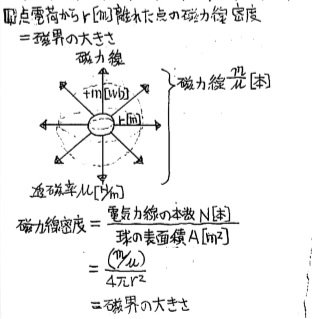 点電荷からr[m]離れた点の磁力線密度
=磁界の大きさ
磁力線
+m[wb]
r[m]
磁力線m/μ[本]
透磁率μ[H/m]
磁力線密度=電気力線の本数N[本]/球の表面積A[m²]
=(m/μ)/4πr²
=磁界の大きさ